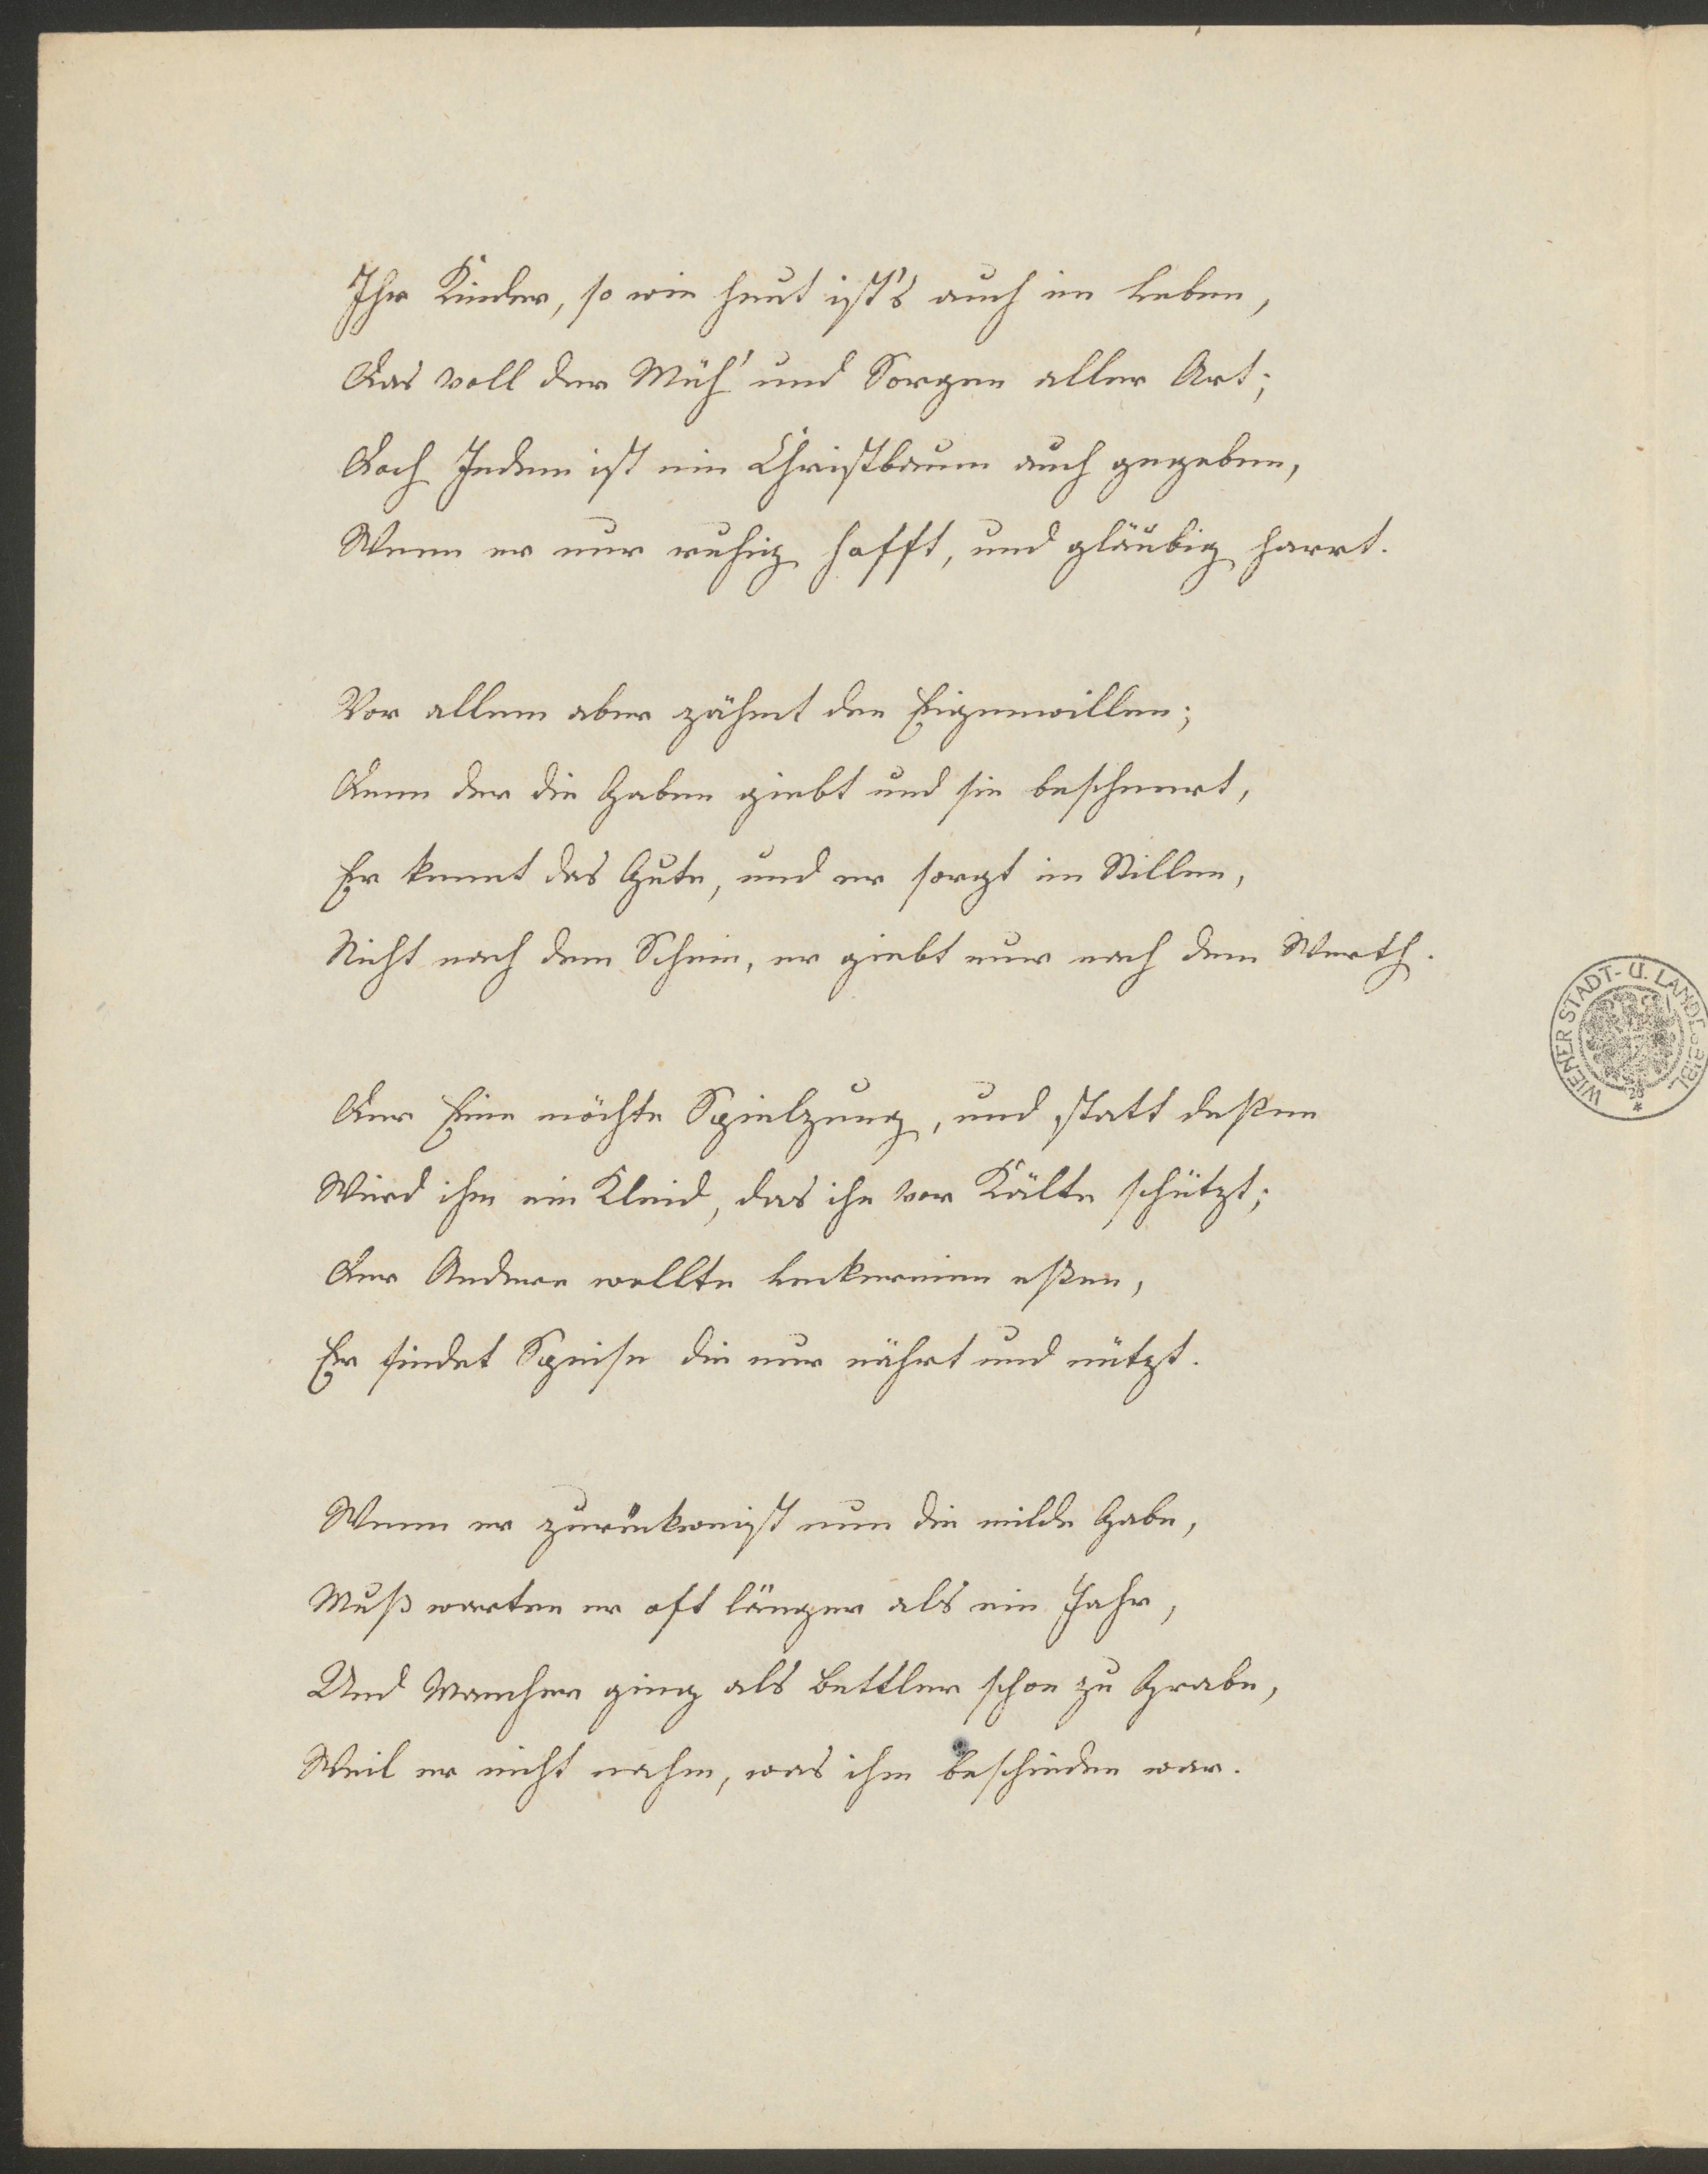 Ihr Kinder, so wie heut ist's auch im Leben,
Das voll der Müh' und Sorgen aller Art;
Doch Jedem ist ein Christbaum auch gegeben,
Wenn er nur ruhig hofft, und gläubig harrt.
Vor allem aber zähmt den Eigenwillen;
Denn der die Gaben giebt und sie bescheert,
Er kennt das Gute, und er sorgt im Stillen,
Nicht nach dem Schein, er giebt nur nach dem Werth.
Der Eine möchte Spielzeug, und statt deßen
Wird ihm ein Kleid, das ihn vor Kälte schützt;
Der Andere wollte Leckereien eßen,
Er findet Speise die nur nährt und nützt.
Wenn er zurückweist nun die milde Gabe,
Muß warten er oft länger als ein Jahr,
Und Mancher ging als Bettler schon zu Grabe,
Weil er nicht nahm, was ihm beschieden war.
WIENER STADT- U. LANDESBIBL.